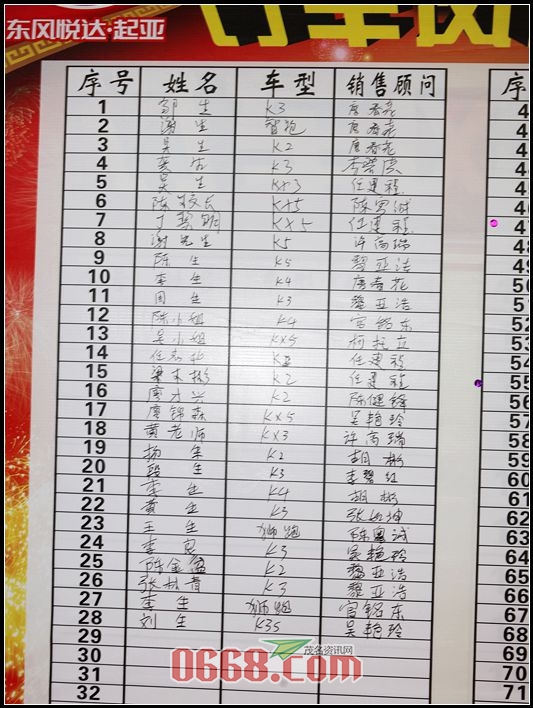 东风悦达·起亚
订车风
序号 姓名 车型 销售顾问 序
1 邹生 K3 唐春花
2 谢生 智跑 唐春花
3 吴生 K2 唐春花
4 K3 李
5 吴生 KX3 任建程
6 陈校长 KX5 陈
7 丁 KX5 任建程
8 谢先生 K5 许尚瑞
9 陈生 K5 黎亚浩
10 李生 K4 唐春花
11 周生 K3 黎亚浩
12 陈小姐 K4 官铭东
13 吴小姐 KX5 柯
14 任 任建程
15 梁木彬 K2 任建程
16 廖才兴 K2 陈健锋
17 廖锦森 KX5 吴艳玲
18 黄老师 KX3 许尚瑞
19 杨生 K2 胡彬
20 段生 K3 李碧红
21 李生 K4 胡彬
22 黄生 K3 张如坤
23 王生 狮跑 陈粤诚
24 李良 K3 吴艳玲
25 陈金 K2 黎亚浩
26 张 K3 黎亚浩
27 李生 狮跑 官铭东
28 刘生 K3S 吴艳玲
29
30
31
32
4
4
4
4
4
46
47
48
49
50
51
52
53
54
55
56
57
58
59
60
61
62
63
64
65
66
67
68
69
70
71
茂名资讯网
0668.com